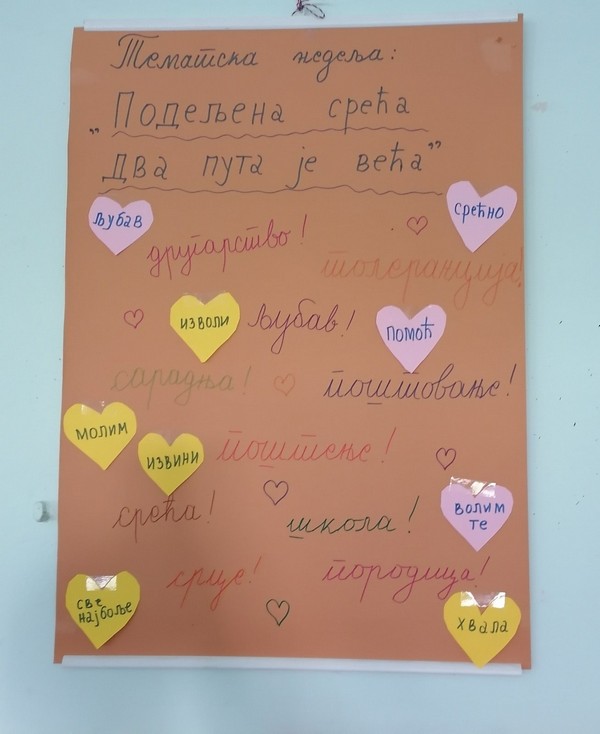 Тематска недеља:
„Подељена срећа
два пута је већа”
љубав
срећно
другарство!
толеранција!
изволи
љубав!
помоћ
сарадња!
поштовање!
молим
извини
поштење!
срећа!
школа!
волим
те
срце!
породица!
све
најбоље
хвала